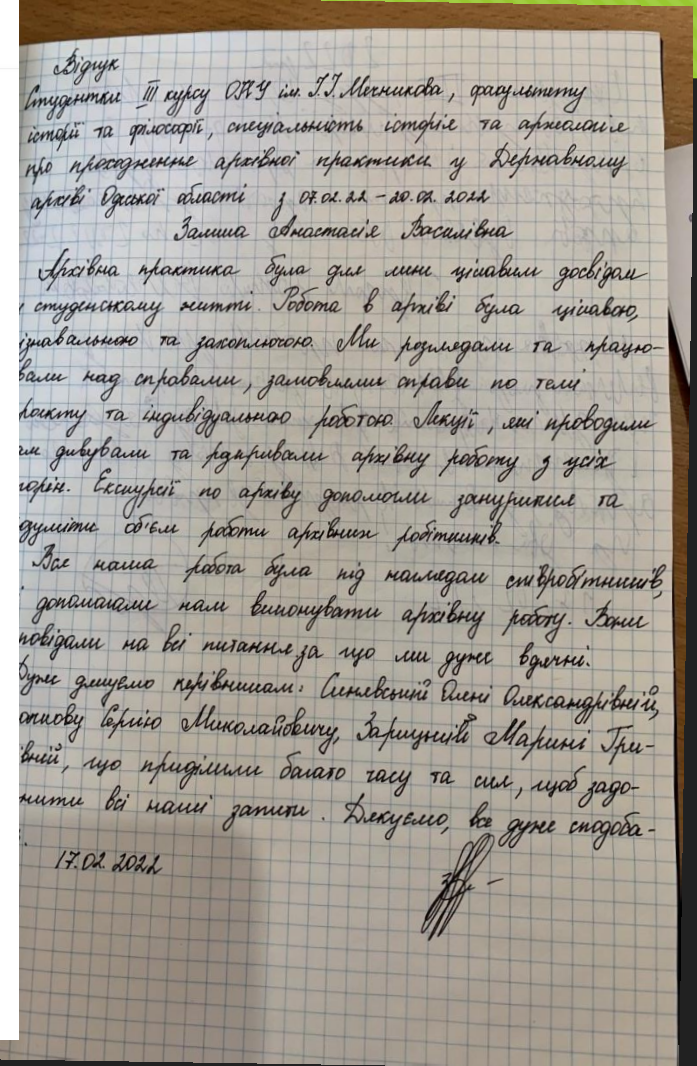 Відгук
Студентки III курсу ОНУ ім. І.І. Мечникова, факультету
історії та філософії, спеціальність історія та археологія
про проходження архівної практики у Державному
архіві Одеської області з 07.02.22 – 20.02.2022
Залиша Анастасія Василівна
Архівна практика була для мене цікавим досвідом
у студенському житті. Робота в архіві була цікавою,
ізнавальною та захоплючою. Ми розглядали та працю-
вали над справами, замовляли справи по темі
роєкту та індивідуальною роботою. Лекції, які проводили
ам дивували та розкривали архівну роботу з усіх
торін. Екскурсії по архіву допомогли зануритися та
зуміти об'єм роботи архівних робітників.
Вся наша робота була під наглядом співробітників,
і допомагали нам виконувати архівну роботу. Вони
повідали на всі питання за що ми дуже вдячні.
Дуже дякуємо керівникам: Синявській Олені Олександрівній,
Сергію Миколайовичу, Зарицькій Марині Гри-
івній, що приділили багато часу та сил, щоб задо-
нити всі наші запити. Дякуємо, все дуже сподоба-
17.02.2022